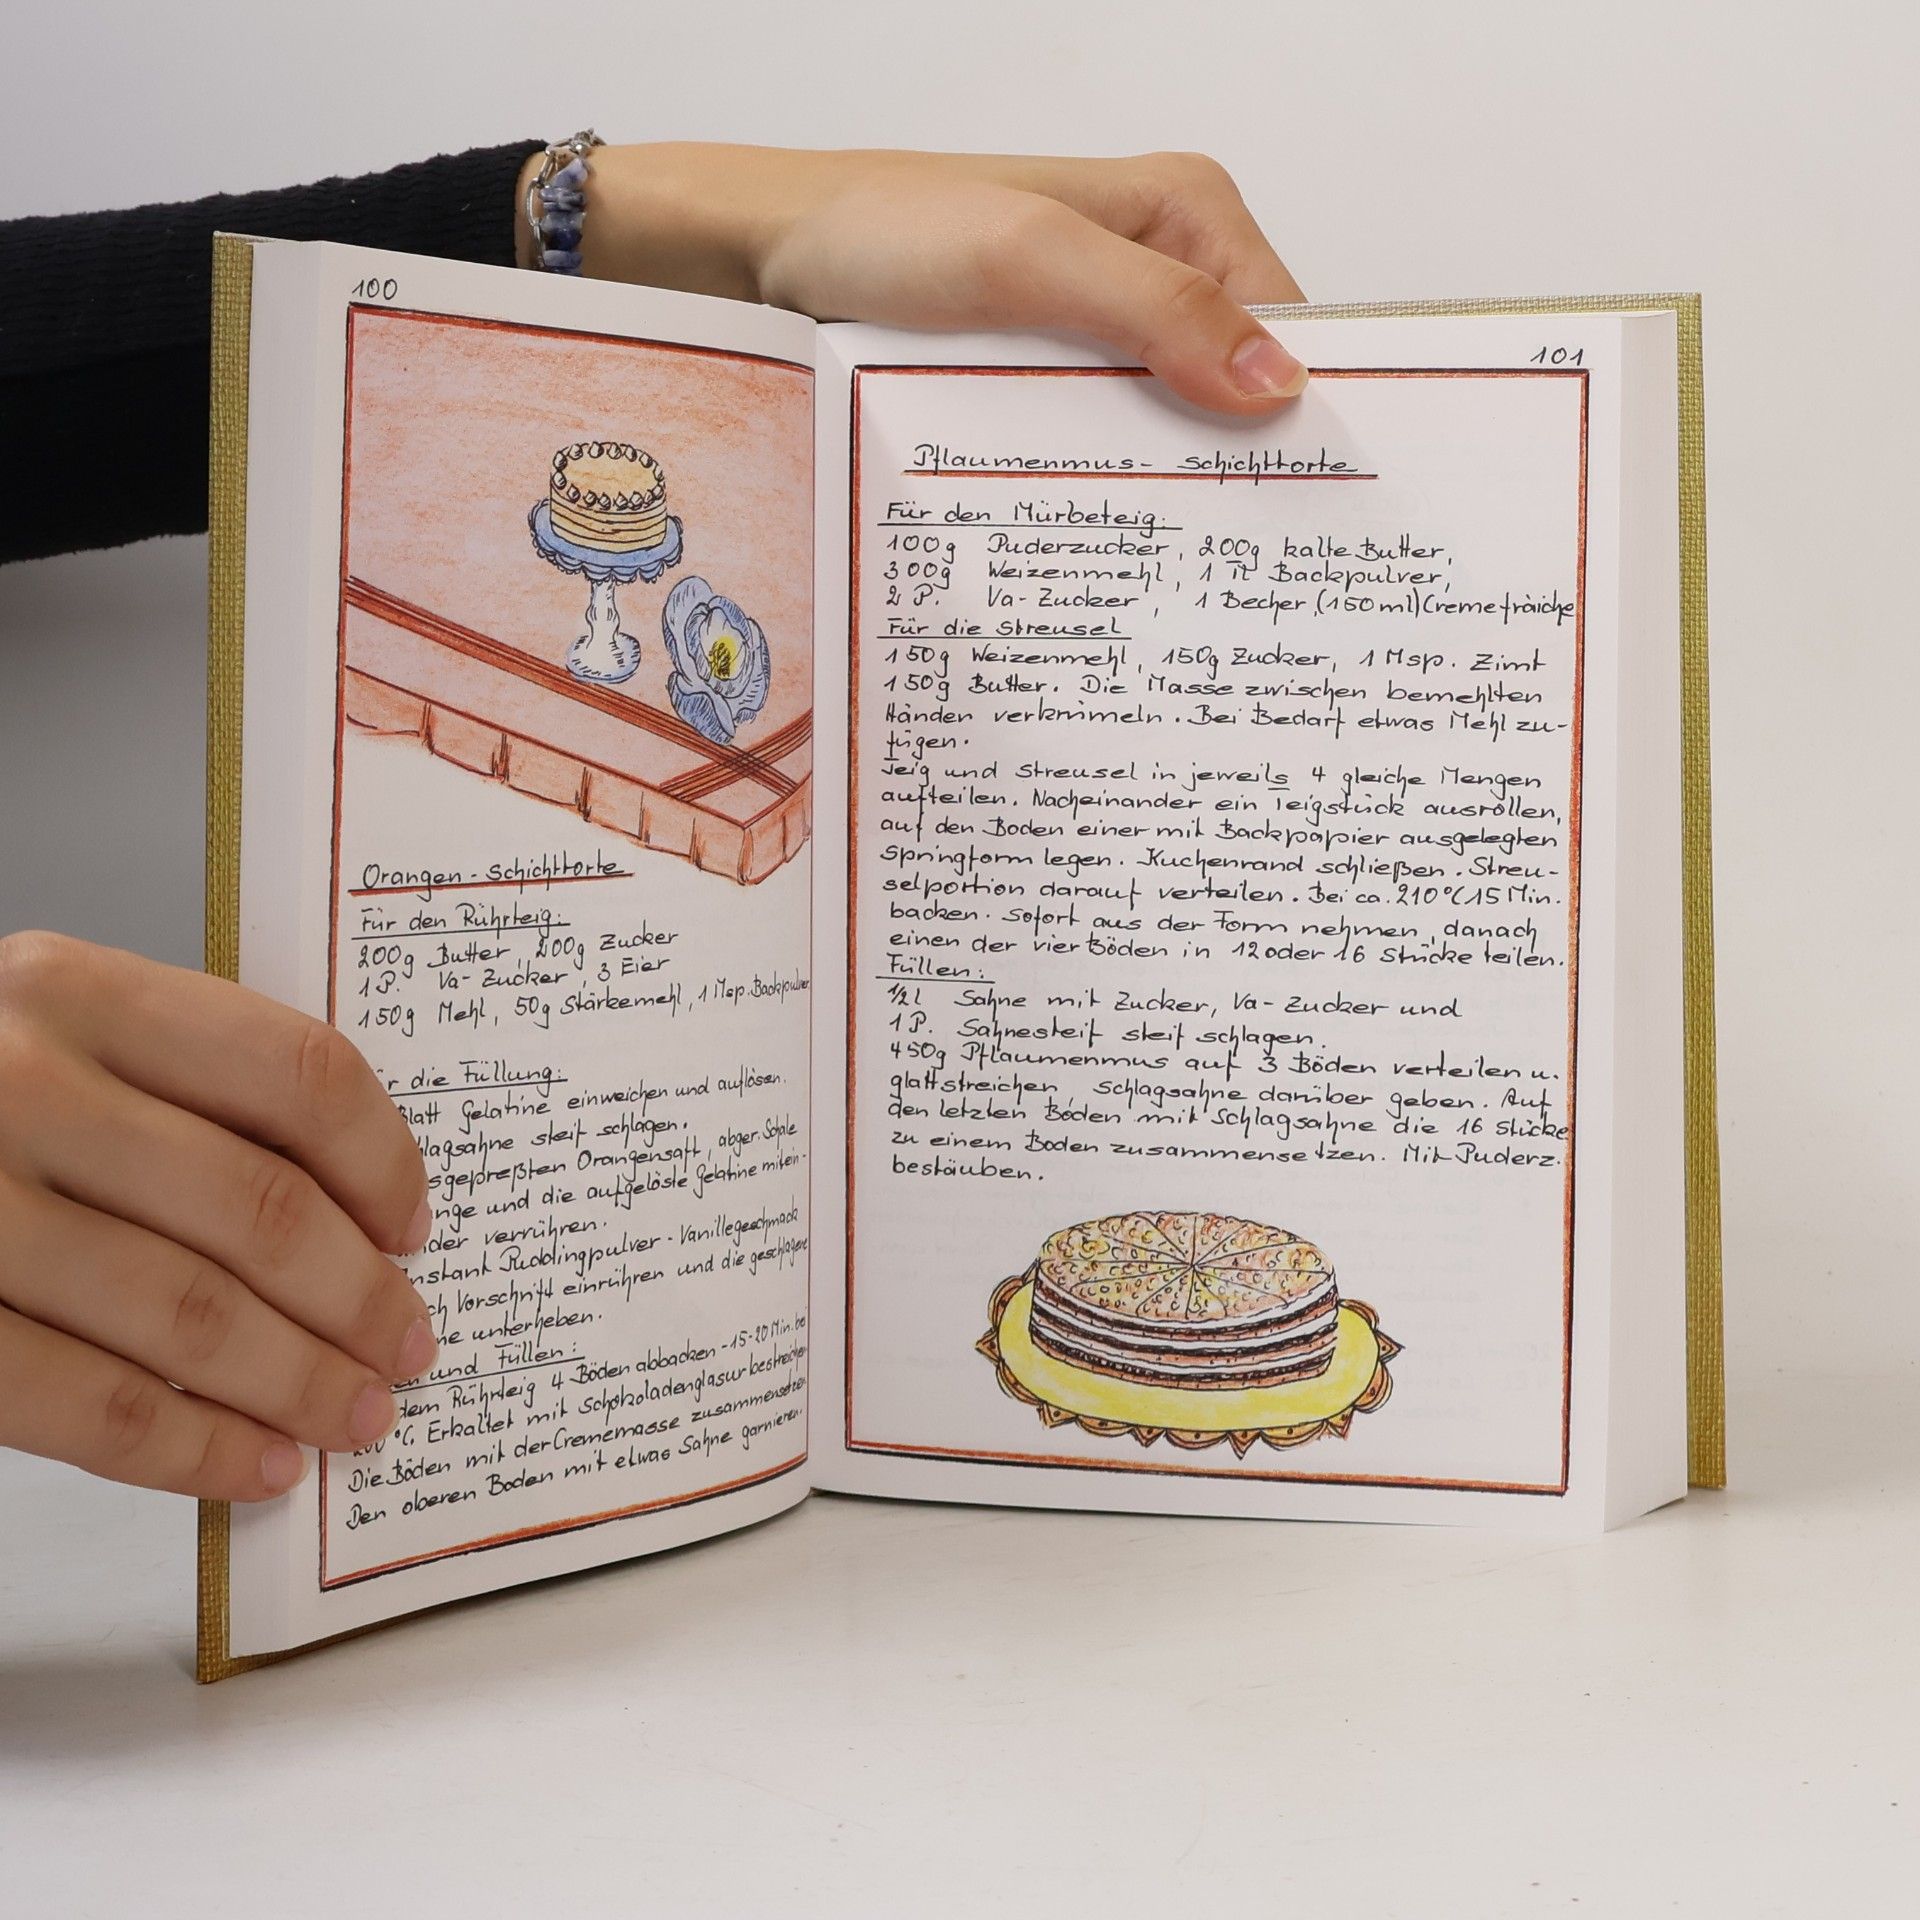 100
Orangen - Schichttorte
Für den Rührteig:
200g Butter, 200g Zucker
1 P. Va- Zucker, 3 Eier
150g Mehl, 50g Stärkemehl, 1 Msp. Backpulver
die Füllung:
Blatt Gelatine einweichen und auflösen.
steif schlagen.
Orangensaft, abger. Schale
und die aufgelöste Gelatine mitein-
verrühren.
Puddingpulver - Vanillegeschmack
Vorschrift einrühren und die geschlagene
unterheben.
und Füllen:
dem Rührteig 4 Böden abbacken - 15-20 Min. bei
200 °C. Erkaltet mit Schokoladenglasur bestreichen
Die Böden mit der Crememasse zusammensetzen.
Den oberen Boden mit etwas Sahne garnieren.
101
Pflaumenmus- Schichttorte
Für den Mürbeteig:
100g Puderzucker, 200g kalte Butter,
300g Weizenmehl, 1 Tl Backpulver,
2 P. Va- Zucker, 1 Becher (150 ml) Creme fràiche
Für die Streusel
150g Weizenmehl, 150g Zucker, 1 Msp. Zimt
150g Butter. Die Masse zwischen bemehlten
Händen verkrümeln. Bei Bedarf etwas Mehl zu-
fügen.
Teig und Streusel in jeweils 4 gleiche Mengen
aufteilen. Nacheinander ein Teigstück ausrollen,
auf den Boden einer mit Backpapier ausgelegten
Springform legen. Kuchenrand schließen. Streu-
selportion darauf verteilen. Bei ca. 210°C 15 Min.
backen. Sofort aus der Form nehmen, danach
einen der vier Böden in 12 oder 16 Stücke teilen.
Füllen:
1/2 l Sahne mit Zucker, Va- Zucker und
1 P. Sahnesteif steif schlagen.
450g Pflaumenmus auf 3 Böden verteilen u.
glattstreichen, Schlagsahne darüber geben. Auf
den letzten Böden mit Schlagsahne die 16 Stücke
zu einem Boden zusammensetzen. Mit Puderz.
bestäuben.